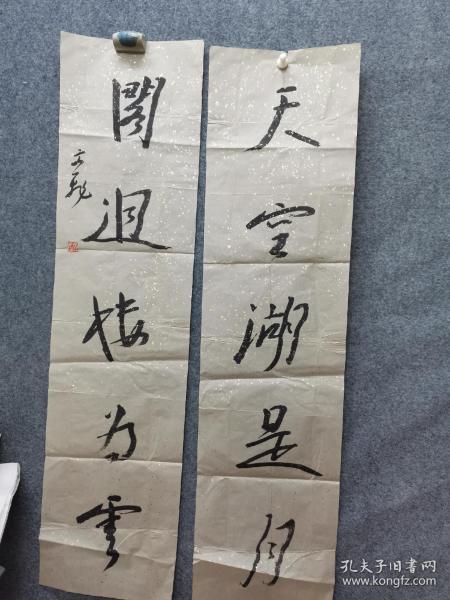 天空湖是月
閣迥楼为雲
孔夫子旧书网
www.kongfz.com